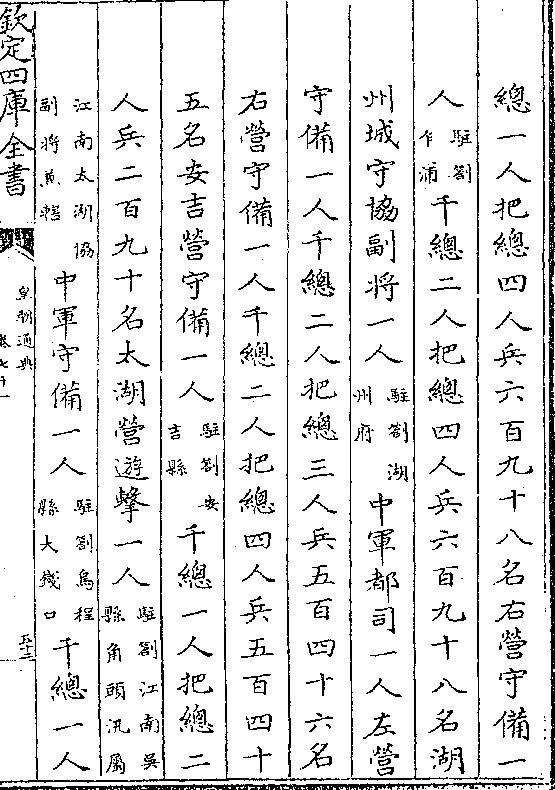 總一人把總四人兵六百九十八名右營守備一
人駐劄乍浦千總二人把總四人兵六百九十八名湖
州城守協副將一人駐劄湖州府中軍都司一人左營
守備一人千總二人把總三人兵五百四十六名
右營守備一人千總二人把總四人兵五百四十
五名安吉營守備一人駐劄安吉縣千總一人把總二
人兵二百九十名太湖營遊擊一人駐劄江南吳縣角頭汛屬
江南太湖協副將兼轄中軍守備一人駐劄烏程縣大錢口千總一人
欽定四庫全書
皇朝通典
卷七十一
五十三